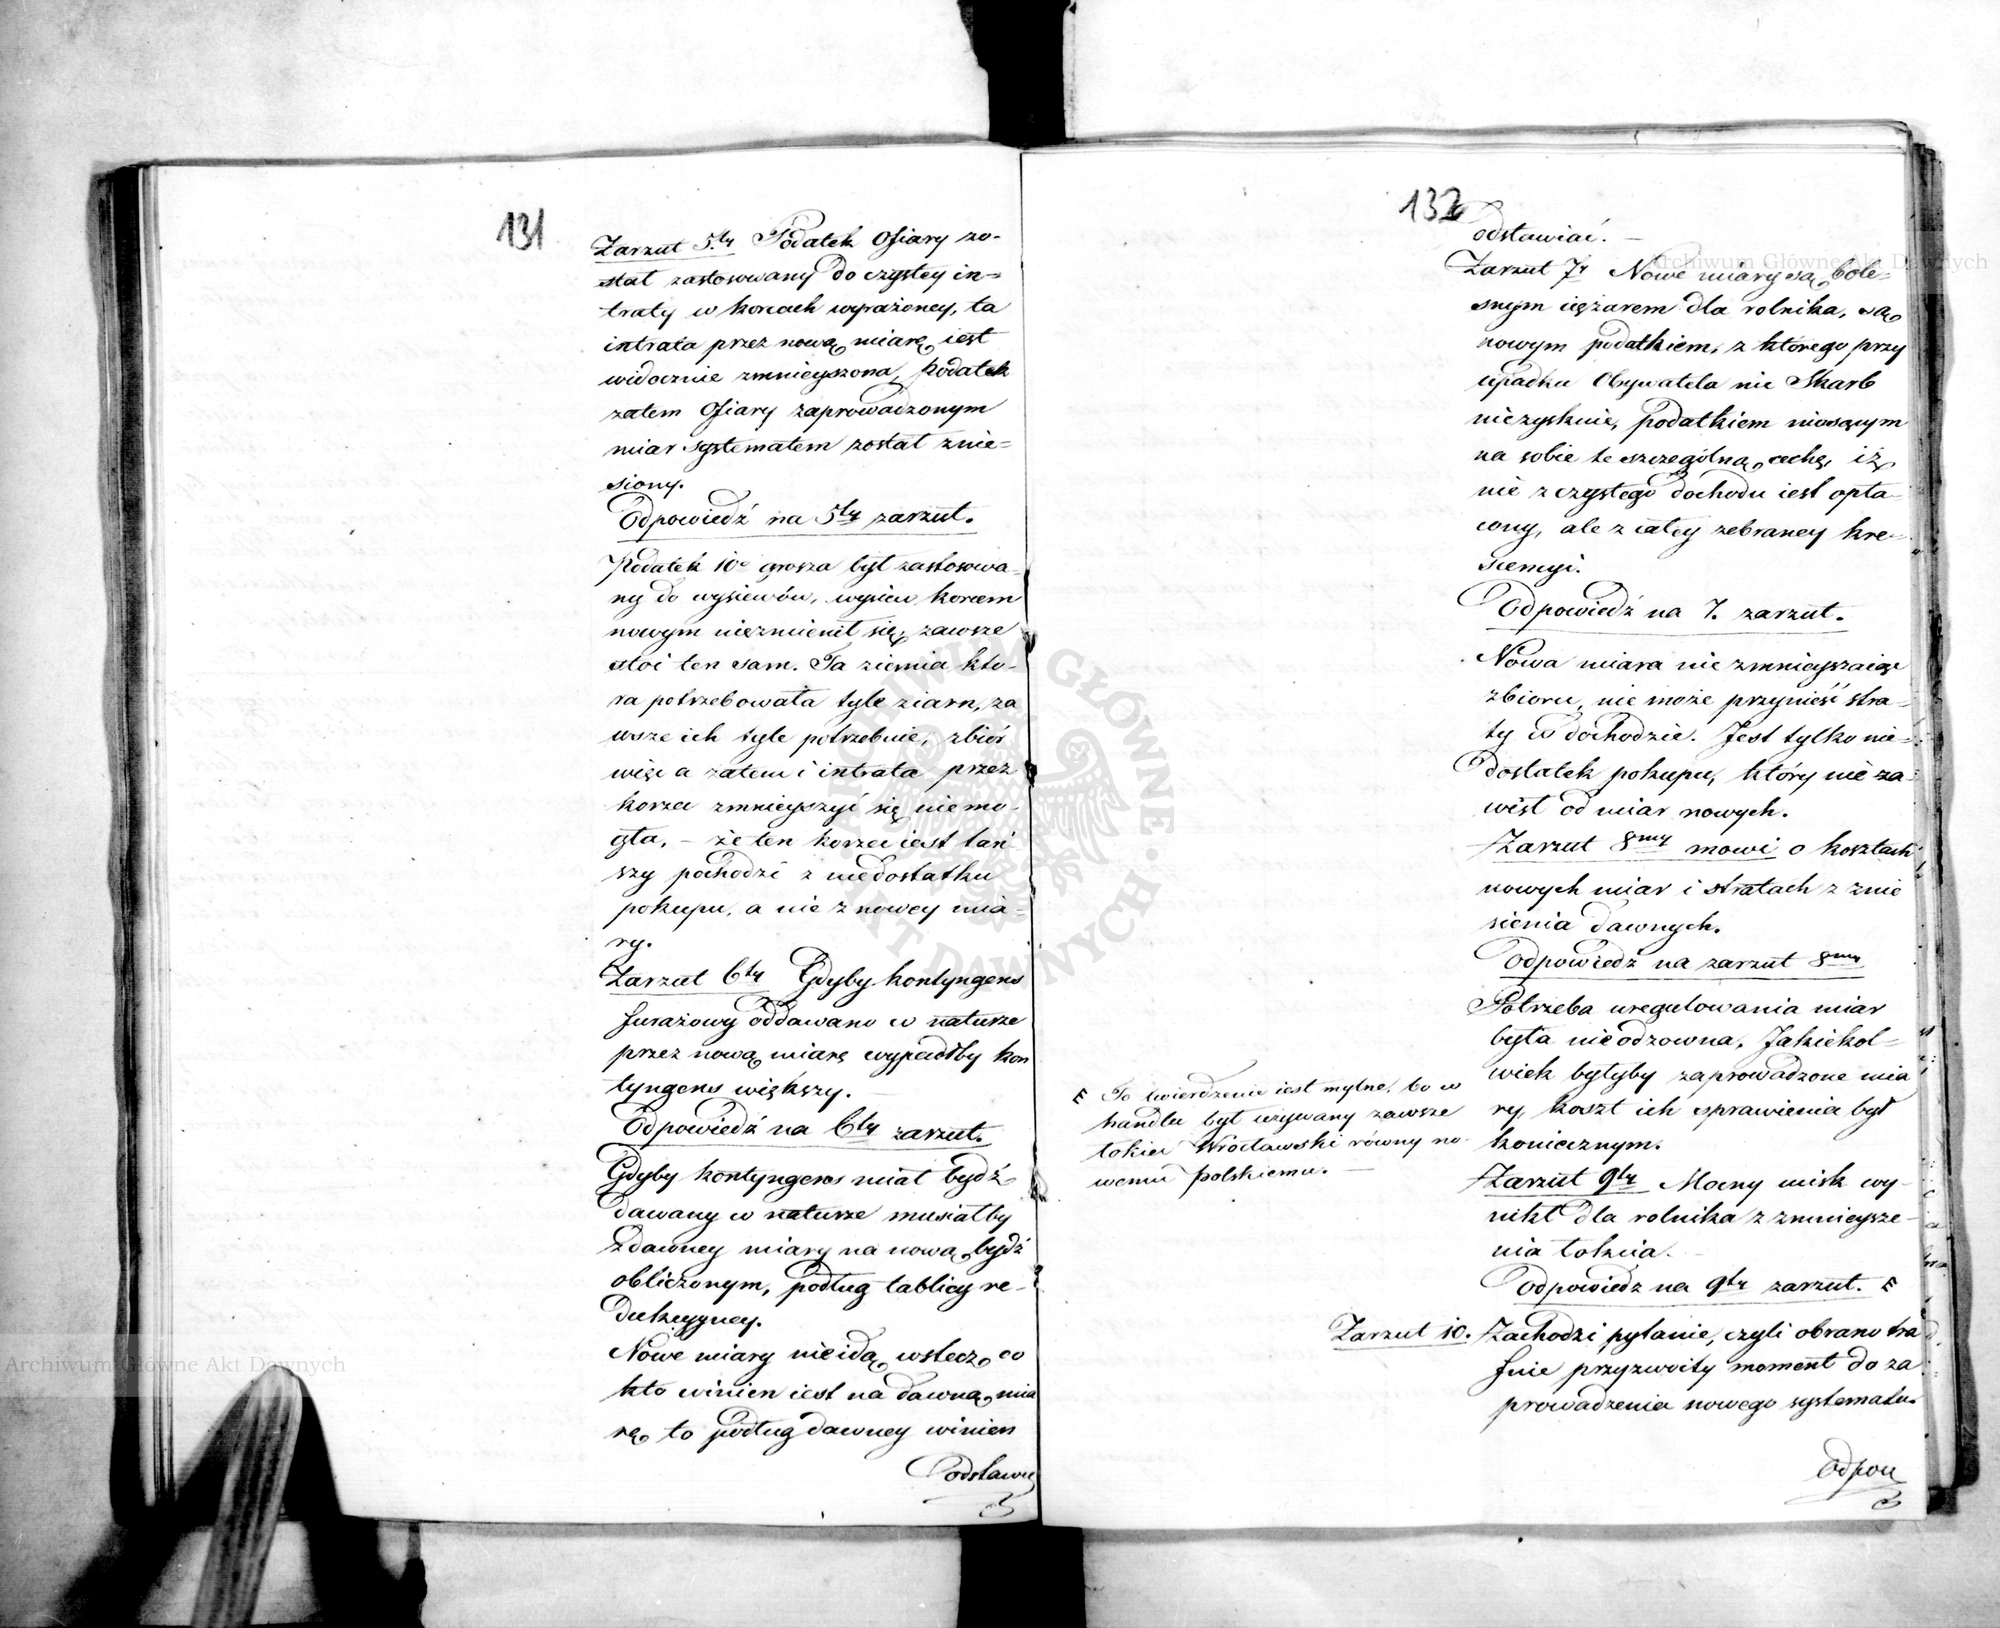 131
Zarzut 5ty Podatek Ofiary zo-
stał zastosowany do czystey in=
traty w korcach wyrażoney, ta
intrata przez nową miarę iest
widocznie zmnieyszona, Podatek
zatem Ofiary zaprowadzonym
miar systematem został znie=
siony.
Odpowiedź na 5ty zarzut.
Podatek 10o grosza był zastosowa-
ny do wysiewów, wysiew korcem
nowym niezmienił się, zawsze
stoi ten sam. Ta ziemia kto-
ra potrzebowała tyle ziarn, za
wsze ich tyle potrzebuie, zbiór
więc a zatem i intrata przez
korzec zmnieyszyć się niemo-
gła, – że ten korzec iest tań
szy pochodzi z niedostatku
pokupu, a nie z nowey mia=
ry.
Zarzut 6ty Gdyby kontyngens
furażowy oddawano w naturze
przez nową miarę wypadłby kon
tyngens większy.
Odpowiedź na 6ty zarzut.
Gdyby kontyngens miał bydź
dawany w naturze musiałby
z dawney miary na nową bydź
obliczonym, podług tablicy re-
dukcyyney.
Nowe miary nieidą wstecz, co
kto winien iest na dawną mia
rę to podług dawney winien
Odstawić
132
odstawiać. –
Zarzut 7y Nowe miary są bole=
snym ciężarem dla rolnika, są
nowym podatkiem, z którego przy
upadku Obywatela nic Skarb
niezyskuie, podatkiem niosącym
na sobie te szczególną cechę, iż
nie z czystego dochodu iest opła-
cony, ale z całey zebraney kre-
scencyi.
Odpowiedź na 7. zarzut.
Nowa miara nie zmnieyszaiąc
zbioru, nie może przynieść stra-
ty w dochodzie. Jest tylko nie=
dostatek pokupu, który nie za-
wisł od miar nowych.
Zarzut 8my mowi o kosztach
nowych miar i stratach z znie
sienia dawnych.
Odpowiedź na zarzut 8my
Potrzeba uregulowania miar
była nieodzowna, Jakiekol=
wiek byłyby zaprowadzone mia
ry, koszt ich sprawienia był
koniecznym.
Zarzut 9ty Mocny ucisk wy-
nikł dla rolnika z zmnieysze-
nia łokcia.
Odpowiedz na 9ty zarzut. E
E To twierdzenie iest mylne, bo w
handlu był używany zawsze
łokieć Wrocławski równy no-
wemu polskiemu. –
Zarzut 10. Zachodzi pytanie, czyli obrano tra
fnie przyzwoity moment do za
prowadzenia nowego systematu.
Odpow
Archiwum Główne Akt Dawnych
Archiwum Główne Akt Dawnych
ARCHIWUM GŁÓWNE AKT DAWNYCH